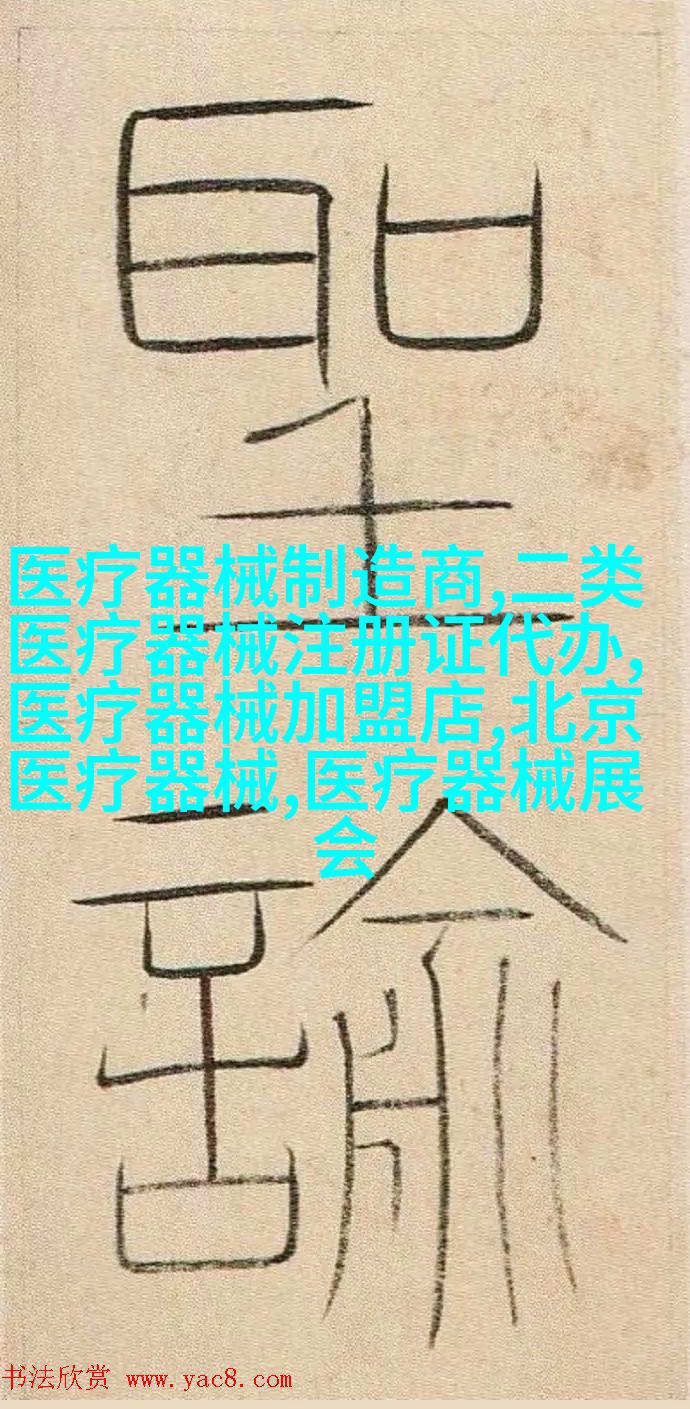 聖
諭
医疗器械制造商,二类
医疗器械注册证代办,
医疗器械加盟店,北京
医疗器械,医疗器械展
会
书法欣赏 www.yac8.com